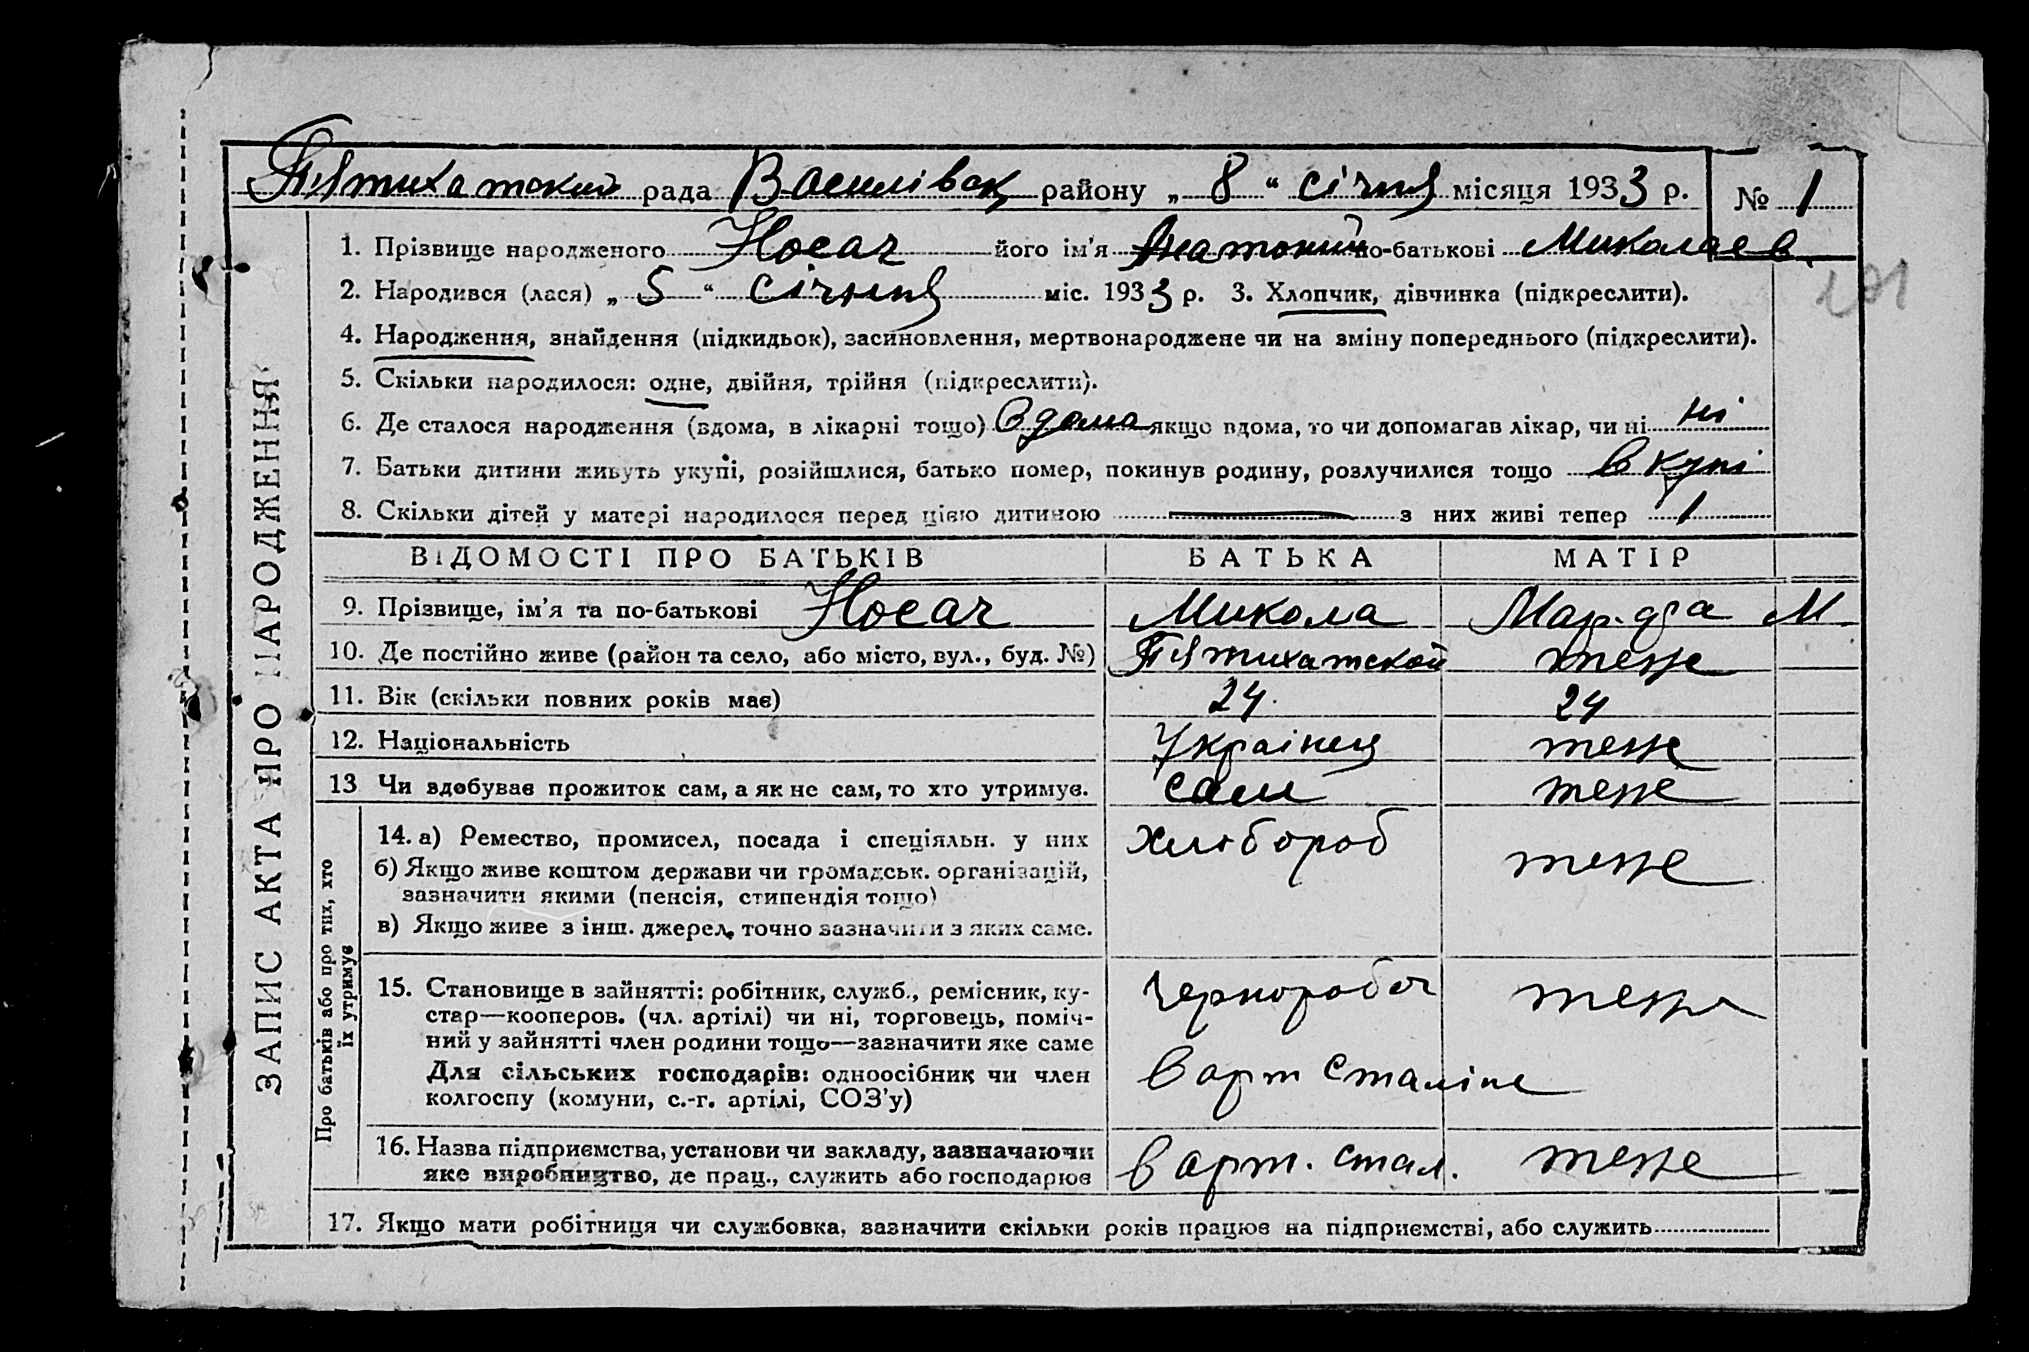 Пятихатский рада Василівск району „ 8 “ січня місяця 1933 р. № 1
1. Прізвище народженого Носач його ім'я Анатоний по-батькові Миколаев.
2. Народився (лася) „ 5 “ Січня міс. 1933 р. 3. Хлопчик, дівчинка (підкреслити).
101
4. Народження, знайдення (підкидьок), засиновлення, мертвонароджене чи на зміну попереднього (підкреслити).
5. Скільки народилося: одне, двійня, трійня (підкреслити).
6. Де сталося народження (вдома, в лікарні тощо) Вдома якщо вдома, то чи допомагав лікар, чи ні ні
7. Батьки дитини живуть укупі, розійшлися, батько помер, покинув родину, розлучилися тощо в купі
8. Скільки дітей у матері народилося перед цією дитиною — з них живі тепер 1
ЗАПИС АКТА ПРО НАРОДЖЕННЯ
ВІДОМОСТІ ПРО БАТЬКІВ БАТЬКА МАТІР
9. Прізвище, ім'я та по-батькові Носач Микола М.
10. Де постійно живе (район та село, або місто, вул., буд. №) Пятихатской теже
11. Вік (скільки повних років має) 24. 24
12. Національність Украінец теже
13 Чи здобуває прожиток сам, а як не сам, то хто утримує. сам теже
Про батьків або про тих, хто їх утримує
14. а) Ремество, промисел, посада і спеціяльн. у них хлібороб теже
б) Якщо живе коштом держави чи громадськ. організацій,
зазначити якими (пенсія, стипендія тощо)
в) Якщо живе з інш. джерел, точно зазначити з яких саме.
15. Становище в зайнятті: робітник, служб., ремісник, ку-
стар—кооперов. (чл. артілі) чи ні, торговець, поміч-
ний у зайнятті член родини тощо—зазначити яке саме
Для сільських господарів: одноосібник чи член
колгоспу (комуни, с.-г. артілі, СОЗ'у)
чернороб теже
в арт Сталіне
16. Назва підприємства, установи чи закладу, зазначаючи
яке виробництво, де прац., служить або господарює
в арт. стал. теже
17. Якщо мати робітниця чи службовка, зазначити скільки років працює на підприємстві, або служить